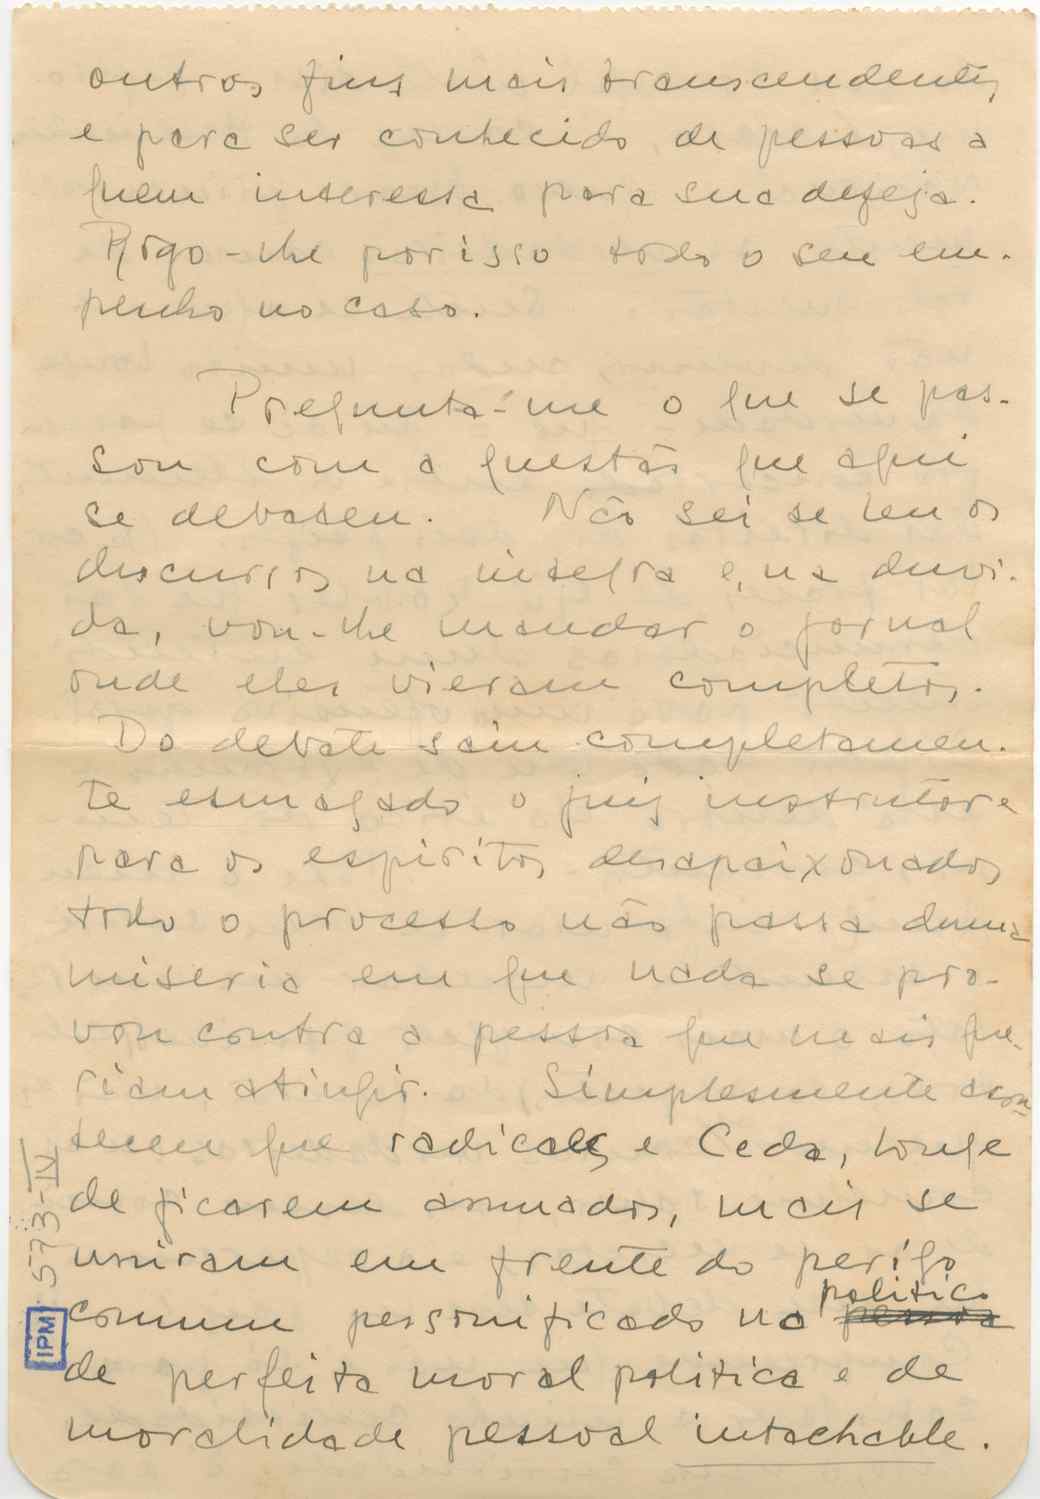 outros fins mais transcendentes
e para ser conhecido de pessoas a
quem interessa para sua defeja.
Rogo-lhe porisso todo o seu em-
penho no caso.
Pregunta-me o que se pas-
sou com a questão que aqui
se debateu. Não sei se leu os
discursos na integra e, na duvi-
da, vou-lhe mandar o jornal
onde eles vieram completos.
Do debate saiu completamen-
te esmagado o juiz instrutor e
para os espiritos desapaixonados
todo o processo não passa duma
miseria em que nada se pro-
vou contra a pessoa que mais que-
riam atingir. Simplesmente acon-
teceu que radicales e Ceda, longe
de ficarem amuados, mais se
uniram em frente do perigo
comum personificado no politico
de perfeita moral politica e de
moralidade pessoal intachable.
573-IV
IPM